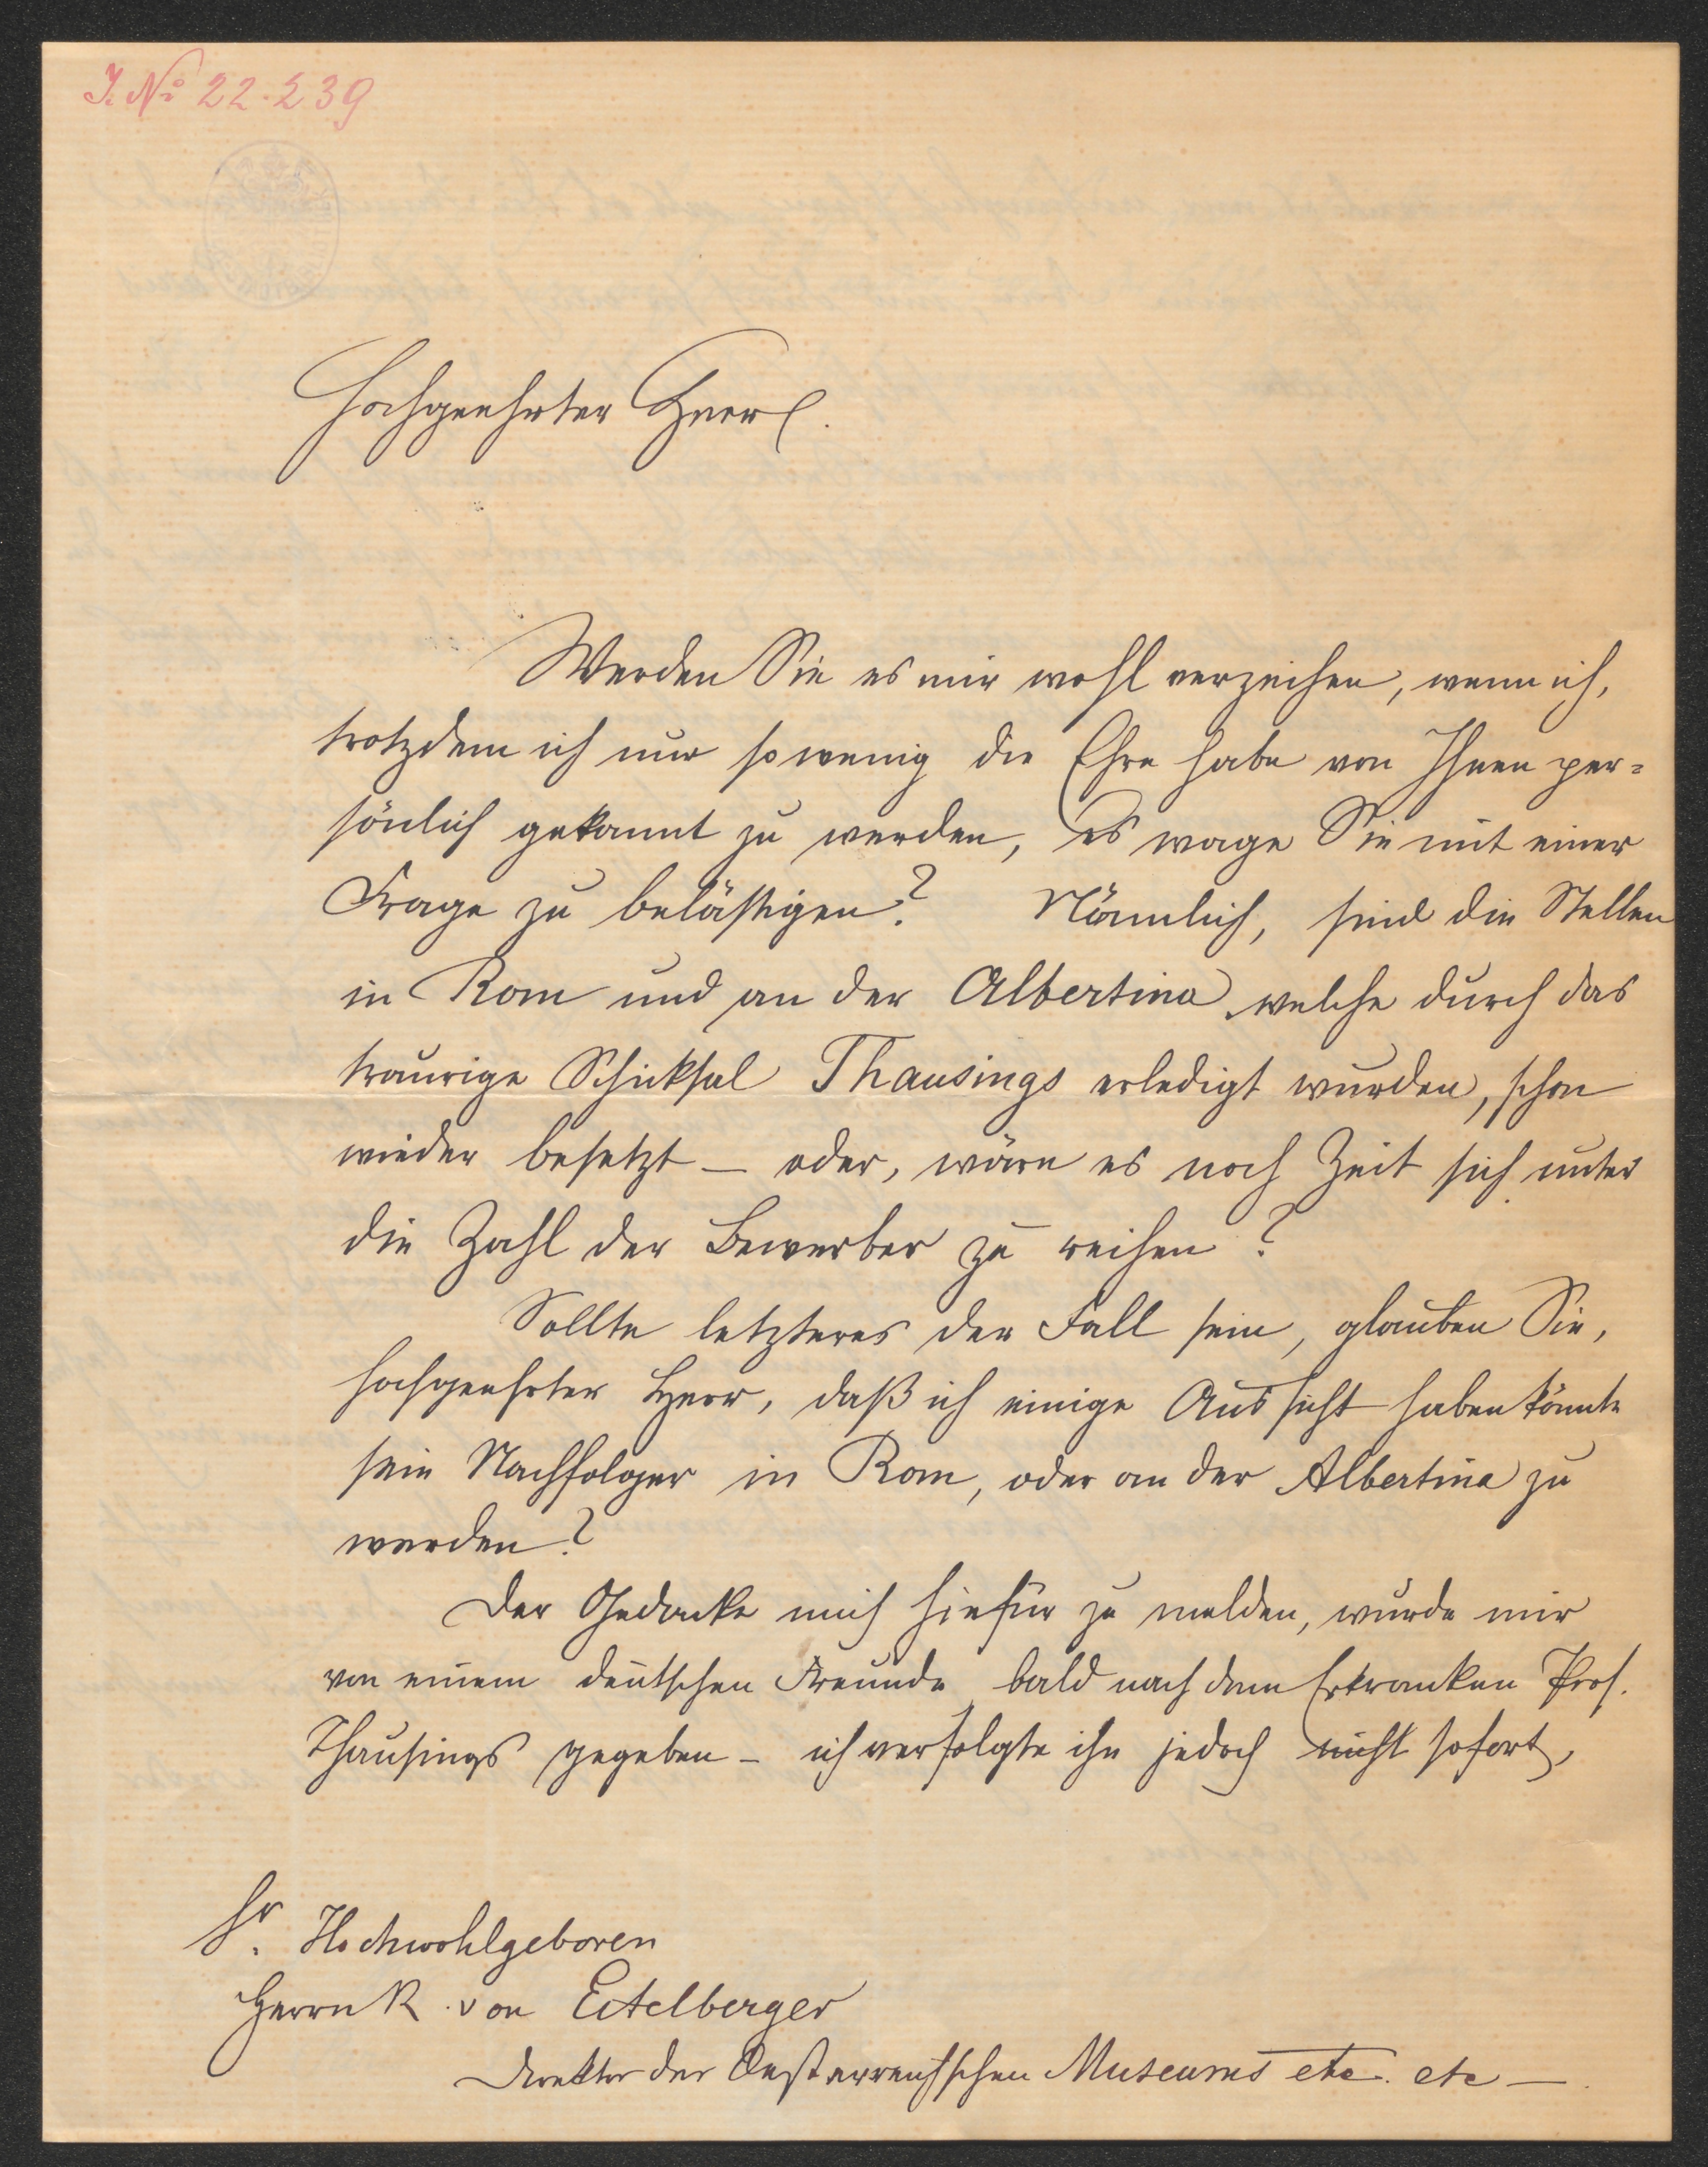 J. No 22.239
Hochgeehrter Herr!
Werden Sie es mir wohl verzeihen, wenn ich,
trotzdem ich nur so wenig die Ehre habe von Ihnen per=
sönlich gekannt zu werden, es wage Sie mit einer
Frage zu belästigen? Nämlich, sind die Stellen
in Rom und an der Albertina welche durch das
traurige Schicksal Thausings erledigt wurden, schon
wieder besetzt – oder, wäre es noch Zeit sich unter
die Zahl der Bewerber zu reihen?
Sollte letzteres der Fall sein, glauben Sie,
hochgeehrter Herr, daß ich einige Aussicht haben könnte
sein Nachfolger in Rom, oder an der Albertina zu
werden?
Der Gedanke mich hiefür zu melden, wurde mir
von einem deutschen Freunde bald nach dem Erkranken Prof.
Thausings gegeben – ich verfolgte ihn jedoch nicht sofort,
Sr. Hochwohlgeboren
Herrn R. von Eitelberger
Direktor des Oesterreichischen Museums etc. etc –